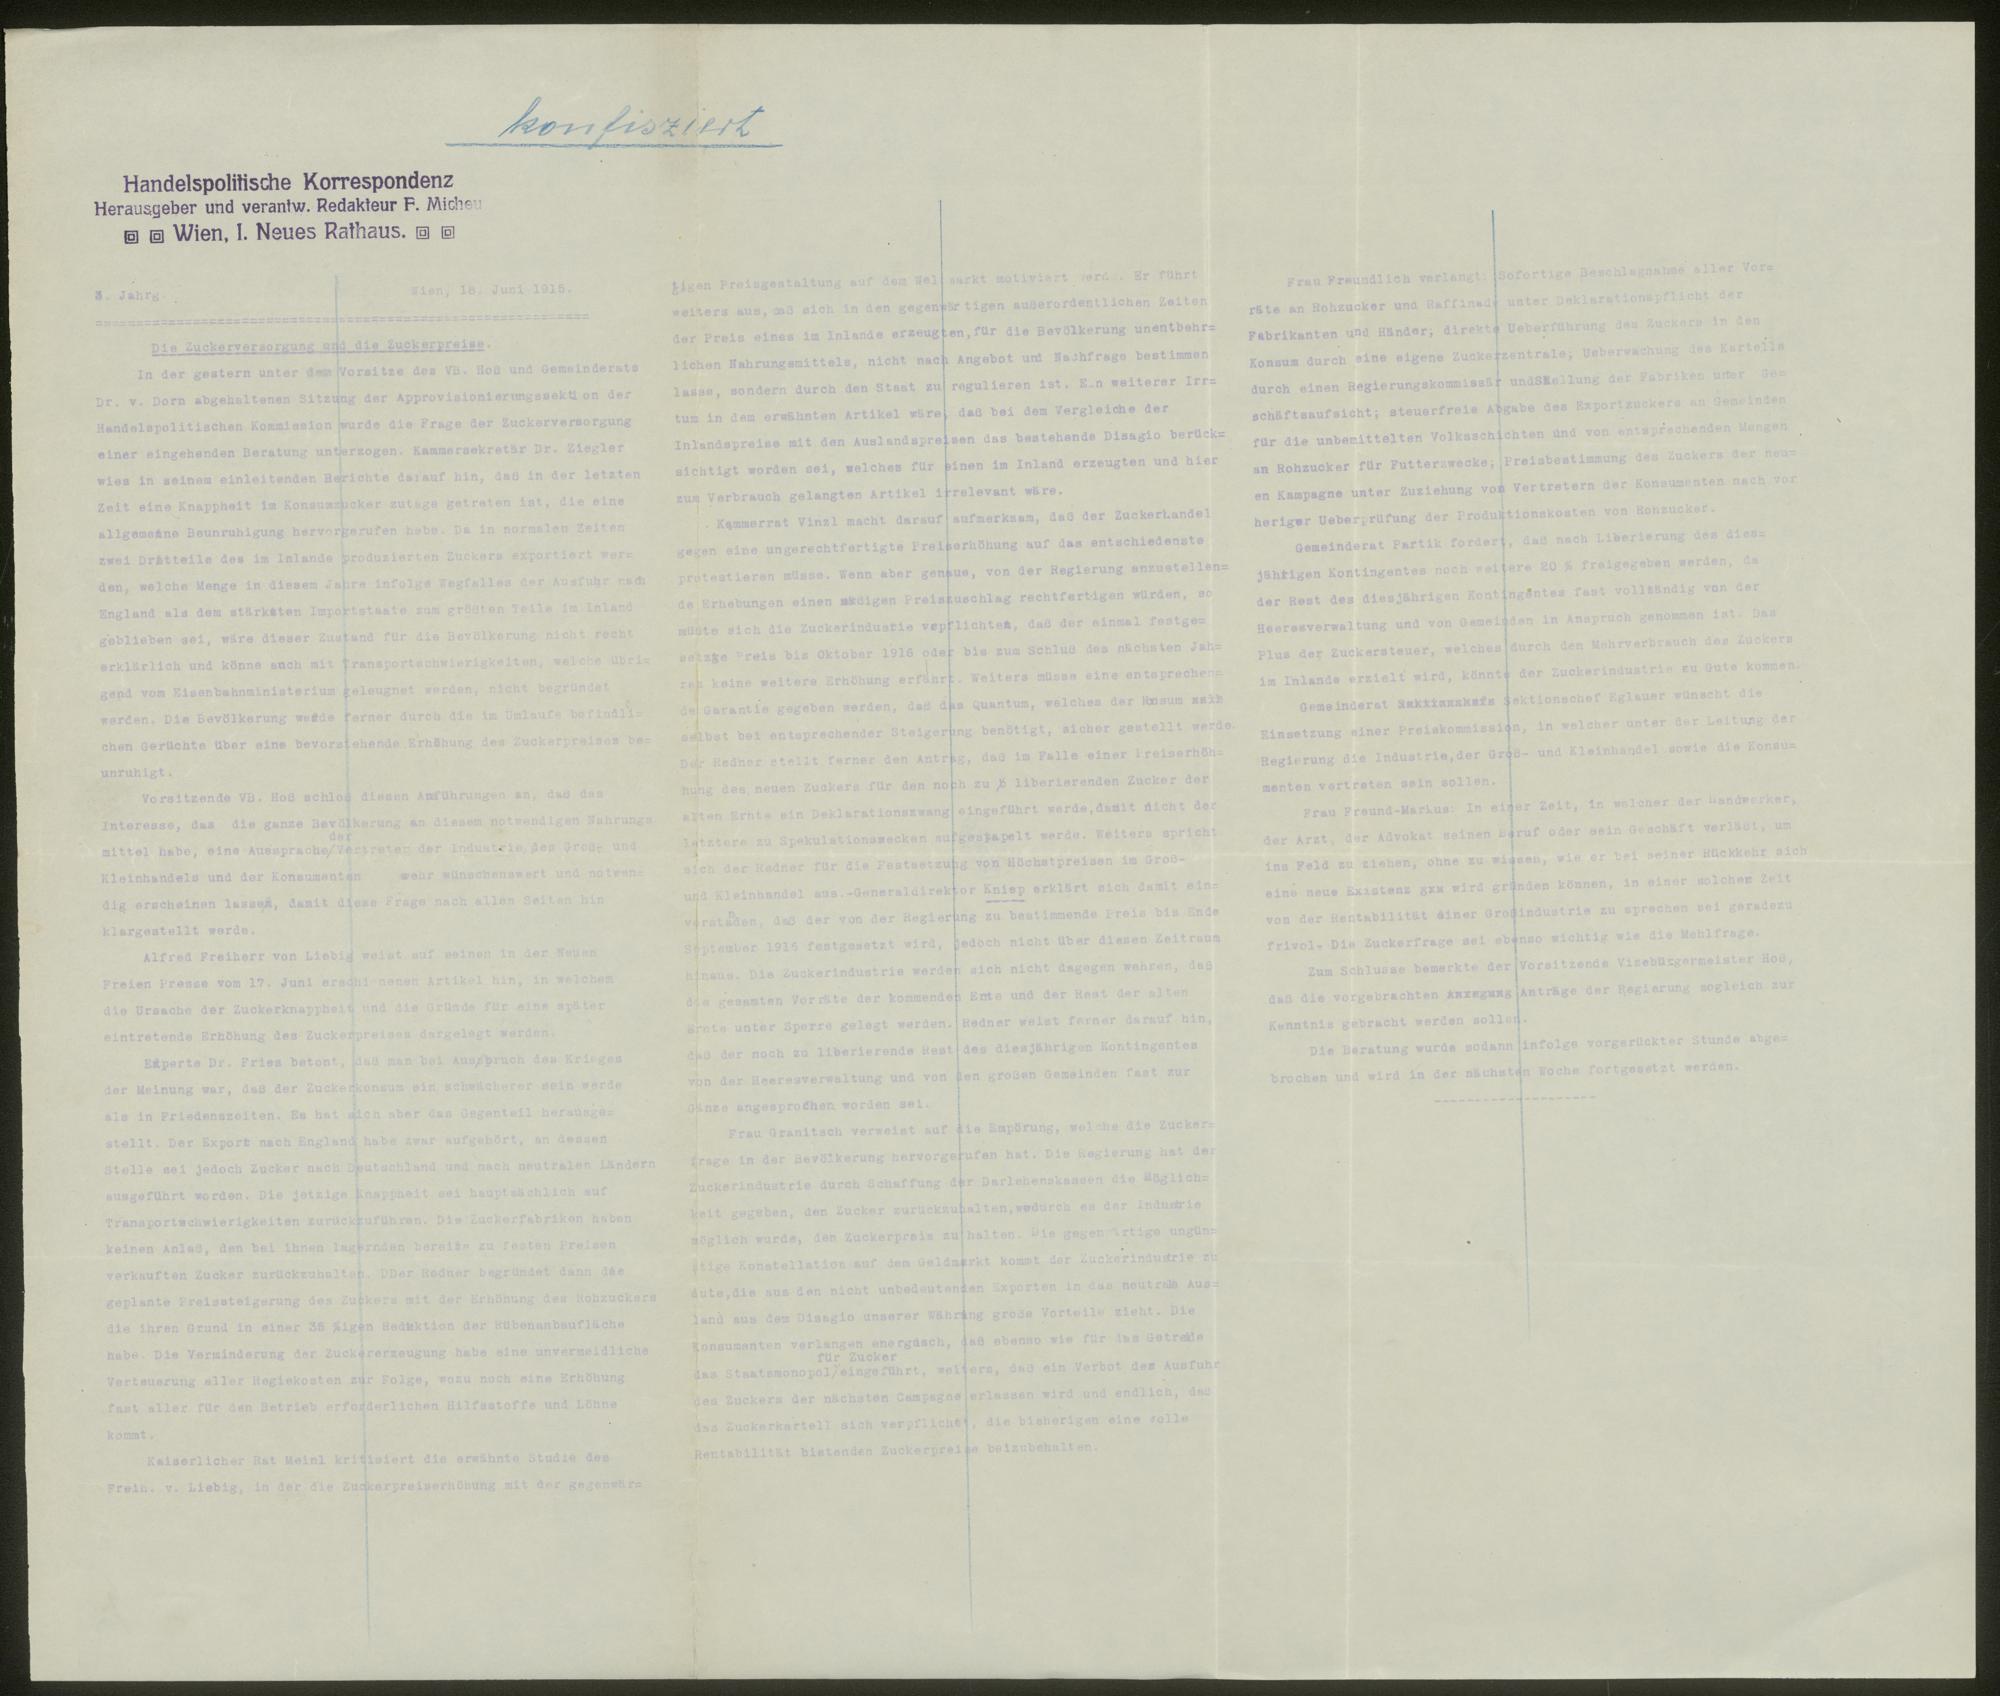 konfisziert
Handelspolitische Korrespondenz
Herausgeber und verantw. Redakteur F. Micheu
Wien, I. Neues Rathaus.
3. Jahrg. Wien, 18. Juni 1915.
=====================================================
Die Zuckerversorgung und die Zuckerpreise.
In der gestern unter dem Vorsitze des VB. Hoß und Gemeinderats
Dr. v. Dorn abgehaltenen Sitzung der Approvisionierungssektion der
Handelspolitischen Kommission wurde die Frage der Zuckerversorgung
einer eingehenden Beratung unterzogen. Kammersekretär Dr. Ziegler
wies in seinem einleitenden Berichte darauf hin, daß in der letzten
Zeit eine Knappheit im Konsumzucker zutage getreten ist, die eine
allgemeine Beunruhigung hervorgerufen habe. Da in normalen Zeiten
zwei Drittteile des im Inlande produzierten Zuckers exportiert wer=
den, welche Menge in diesem Jahre infolge Wegfalles der Ausfuhr nach
England als dem stärksten Importstaate zum größten Teile im Inland
geblieben sei, wäre dieser Zustand für die Bevölkerung nicht recht
erklärlich und könne auch mit Transportschwierigkeiten, welche übri=
gend vom Eisenbahnministerium geleugnet werden, nicht begründet
werden. Die Bevölkerung werde ferner durch die im Umlaufe befindli=
chen Gerüchte über eine bevorstehende Erhöhung des Zuckerpreises be=
unruhigt.
Vorsitzende VB. Hoß schloß diesen Anführungen an, daß das
Interesse, das die ganze Bevölkerung an diesem notwendigen Nahrungs
mittel habe, eine Aussprache/der Vertreter der Industrie, des Groß- und
Kleinhandels und der Konsumenten sehr wünschenswert und notwen=
dig erscheinen lassen, damit diese Frage nach allen Seiten hin
klargestellt werde.
Alfred Freiherr von Liebig weist auf seinen in der Neuen
Freien Presse vom 17. Juni erschienenen Artikel hin, in welchem
die Ursache der Zuckerknappheit und die Gründe für eine später
eintretende Erhöhung des Zuckerpreises dargelegt werden.
Experte Dr. Fries betont, daß man bei Ausbruch des Krieges
der Meinung war, daß der Zuckerkonsum ein schwächerer sein werde
als in Friedenszeiten. Es hat sich aber das Gegenteil herausge=
stellt. Der Export nach England habe zwar aufgehört, an dessen
Stelle sei jedoch Zucker nach Deutschland und nach neutralen Ländern
ausgeführt worden. Die jetzige Knappheit sei hauptsächlich auf
Transportschwierigkeiten zurückzuführen. Die Zuckerfabriken haben
keinen Anlaß, den bei ihnen lagernden bereits zu festen Preisen
verkauften Zucker zurückzuhalten. DDer Redner begründet dann die
geplante Preissteigerung des Zuckers mit der Erhöhung des Rohzuckers
die ihren Grund in einer 35 %igen Reduktion der Rübenanbaufläche
habe. Die Verminderung der Zuckererzeugung habe eine unvermeidliche
Verteuerung aller Regiekosten zur Folge, wozu noch eine Erhöhung
fast aller für den Betrieb erforderlichen Hilfsstoffe und Löhne
kommt.
Kaiserlicher Rat Meinl kritisiert die erwähnte Studie des
Freih. v. Liebig, in der die Zuckerpreiserhöhung mit der gegenwär=
tigen Preisgestaltung auf dem Weltmarkt motiviert werde. Er führt
weiters aus, daß sich in den gegenwärtigen außerordentlichen Zeiten
der Preis eines im Inlande erzeugten, für die Bevölkerung unentbehr=
lichen Nahrungsmittels, nicht nach Angebot und Nachfrage bestimmen
lasse, sondern durch den Staat zu regulieren ist. Ein weiterer Irr=
tum in dem erwähnten Artikel wäre, daß bei dem Vergleiche der
Inlandspreise mit den Auslandspreisen das bestehende Disagio berück=
sichtigt worden sei, welches für einen im Inland erzeugten und hier
zum Verbrauch gelangten Artikel irrelevant wäre.
Kammerrat Vinzl macht darauf aufmerksam, daß der Zuckerhandel
gegen eine ungerechtfertigte Preiserhöhung auf das entschiedenste
protestieren müsse. Wenn aber genaue, von der Regierung anzustellen=
de Erhebungen einen mäßigen Preiszuschlag rechtfertigen würden, so
müßte sich die Zuckerindustrie verpflichten, daß der einmal festge=
setzte Preis bis Oktober 1916 oder bis zum Schluß des nächsten Jah=
res keine weitere Erhöhung erfährt. Weiters müsse eine entsprechen=
de Garantie gegeben werden, daß das Quantum, welches der Konsum
selbst bei entsprechender Steigerung benötigt, sicher gestellt werde.
Der Redner stellt ferner den Antrag, daß im Falle einer Preiserhöh=
hung des neuen Zuckers für den noch zu liberierenden Zucker der
alten Ernte ein Deklarationszwang eingeführt werde, damit nicht der
letztere zu Spekulationszwecken aufgestapelt werde. Weiters spricht
sich der Redner für die Festsetzung von Höchstpreisen im Groß-
und Kleinhandel aus.-Generaldirektor Kniep erklärt sich damit ein=
verstanden, daß der von der Regierung zu bestimmende Preis bis Ende
September 1916 festgesetzt wird, jedoch nicht über diesen Zeitraum
hinaus. Die Zuckerindustrie werden sich nicht dagegen wehren, daß
die gesamten Vorräte der kommenden Ernte und der Rest der alten
Ernte unter Sperre gelegt werden. Redner weist ferner darauf hin,
daß der noch zu liberierende Rest des diesjährigen Kontingentes
von der Heeresverwaltung und von den großen Gemeinden fast zur
Gänze angesprochen worden sei.
Frau Granitsch verweist auf die Empörung, welche die Zucker=
frage in der Bevölkerung hervorgerufen hat. Die Regierung hat der
Zuckerindustrie durch Schaffung der Darlehenskassen die Möglich=
keit gegeben, den Zucker zurückzuhalten, wodurch es der Industrie
möglich wurde, den Zuckerpreis zu halten. Die gegenwärtige ungün=
stige Konstellation auf dem Geldmarkt kommt der Zuckerindustrie zu
Gute, die aus den nicht unbedeutenden Exporten in das neutrale Aus=
land aus dem Disagio unserer Währung große Vorteile zieht. Die
Konsumenten verlangen energisch, daß ebenso wie für das Getreide
für Zucker
das Staatsmonopol/eingeführt, weiters, daß ein Verbot der Ausfuhr
des Zuckers der nächsten Campagne erlassen wird und endlich, daß
das Zuckerkartell sich verpflichet, die bisherigen eine volle
Rentabilität bietenden Zuckerpreise beizubehalten.
Frau Freundlich verlangt: Sofortige Beschlagnahme aller Vor=
räte an Rohzucker und Raffinade unter Deklarationspflicht der
Fabrikanten und Händer; direkte Ueberführung des Zuckers in den
Konsum durch eine eigene Zuckerzentrale; Ueberwachung des Kartells
durch einen Regierungskommissär und Stellung der Fabriken unter Ge=
schäftsaufsicht; steuerfreie Abgabe des Exportzuckers an Gemeinden
für die unbemittelten Volksschichten und von entsprechenden Mengen
an Rohzucker für Futterzwecke; Preisbestimmung des Zuckers der neu=
en Kampagne unter Zuziehung von Vertretern der Konsumenten nach vor
heriger Ueberprüfung der Produktionskosten von Rohzucker.
Gemeinderat Partik fordert, daß nach Liberierung des dies=
jährigen Kontingentes noch weitere 20 % freigegeben werden, da
der Rest des diesjährigen Kontingentes fast vollständig von der
Heeresverwaltung und von Gemeinden in Anspruch genommen ist. Das
Plus der Zuckersteuer, welches durch den Mehrverbrauch des Zuckers
im Inlande erzielt wird, könnte der Zuckerindustrie zu Gute kommen.
Gemeinderat Sektionschef Eglauer wünscht die
Einsetzung einer Preiskommission, in welcher unter der Leitung der
Regierung die Industrie, der Groß- und Kleinhandel sowie die Konsu=
menten vertreten sein sollen.
Frau Freund-Markus: In einer Zeit, in welcher der Handwerker,
der Arzt, der Advokat seinen Beruf oder sein Geschäft verläßt, um
ins Feld zu ziehen, ohne zu wissen, wie er bei seiner Rückkehr sich
eine neue Existenz wird gründen können, in einer solchen Zeit
von der Rentabilität einer Großindustrie zu sprechen sei geradezu
frivol. Die Zuckerfrage sei ebenso wichtig wie die Mehlfrage.
Zum Schlusse bemerkte der Vorsitzende Vizebürgermeister Hoß,
daß die vorgebrachten Anträge der Regierung sogleich zur
Kenntnis gebracht werden sollen.
Die Beratung wurde sodann infolge vorgerückter Stunde abge=
brochen und wird in der nächsten Woche fortgesetzt werden.
--------------------